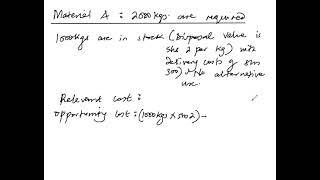 Material A : 2000kgs. are required
1000kgs are in stock (Disposal value is
shs 2 per kg) with
delivery costs of shs
300) alternative
use.
Relevant cost:
opportunity cost : (1000kgs x shs 2) -